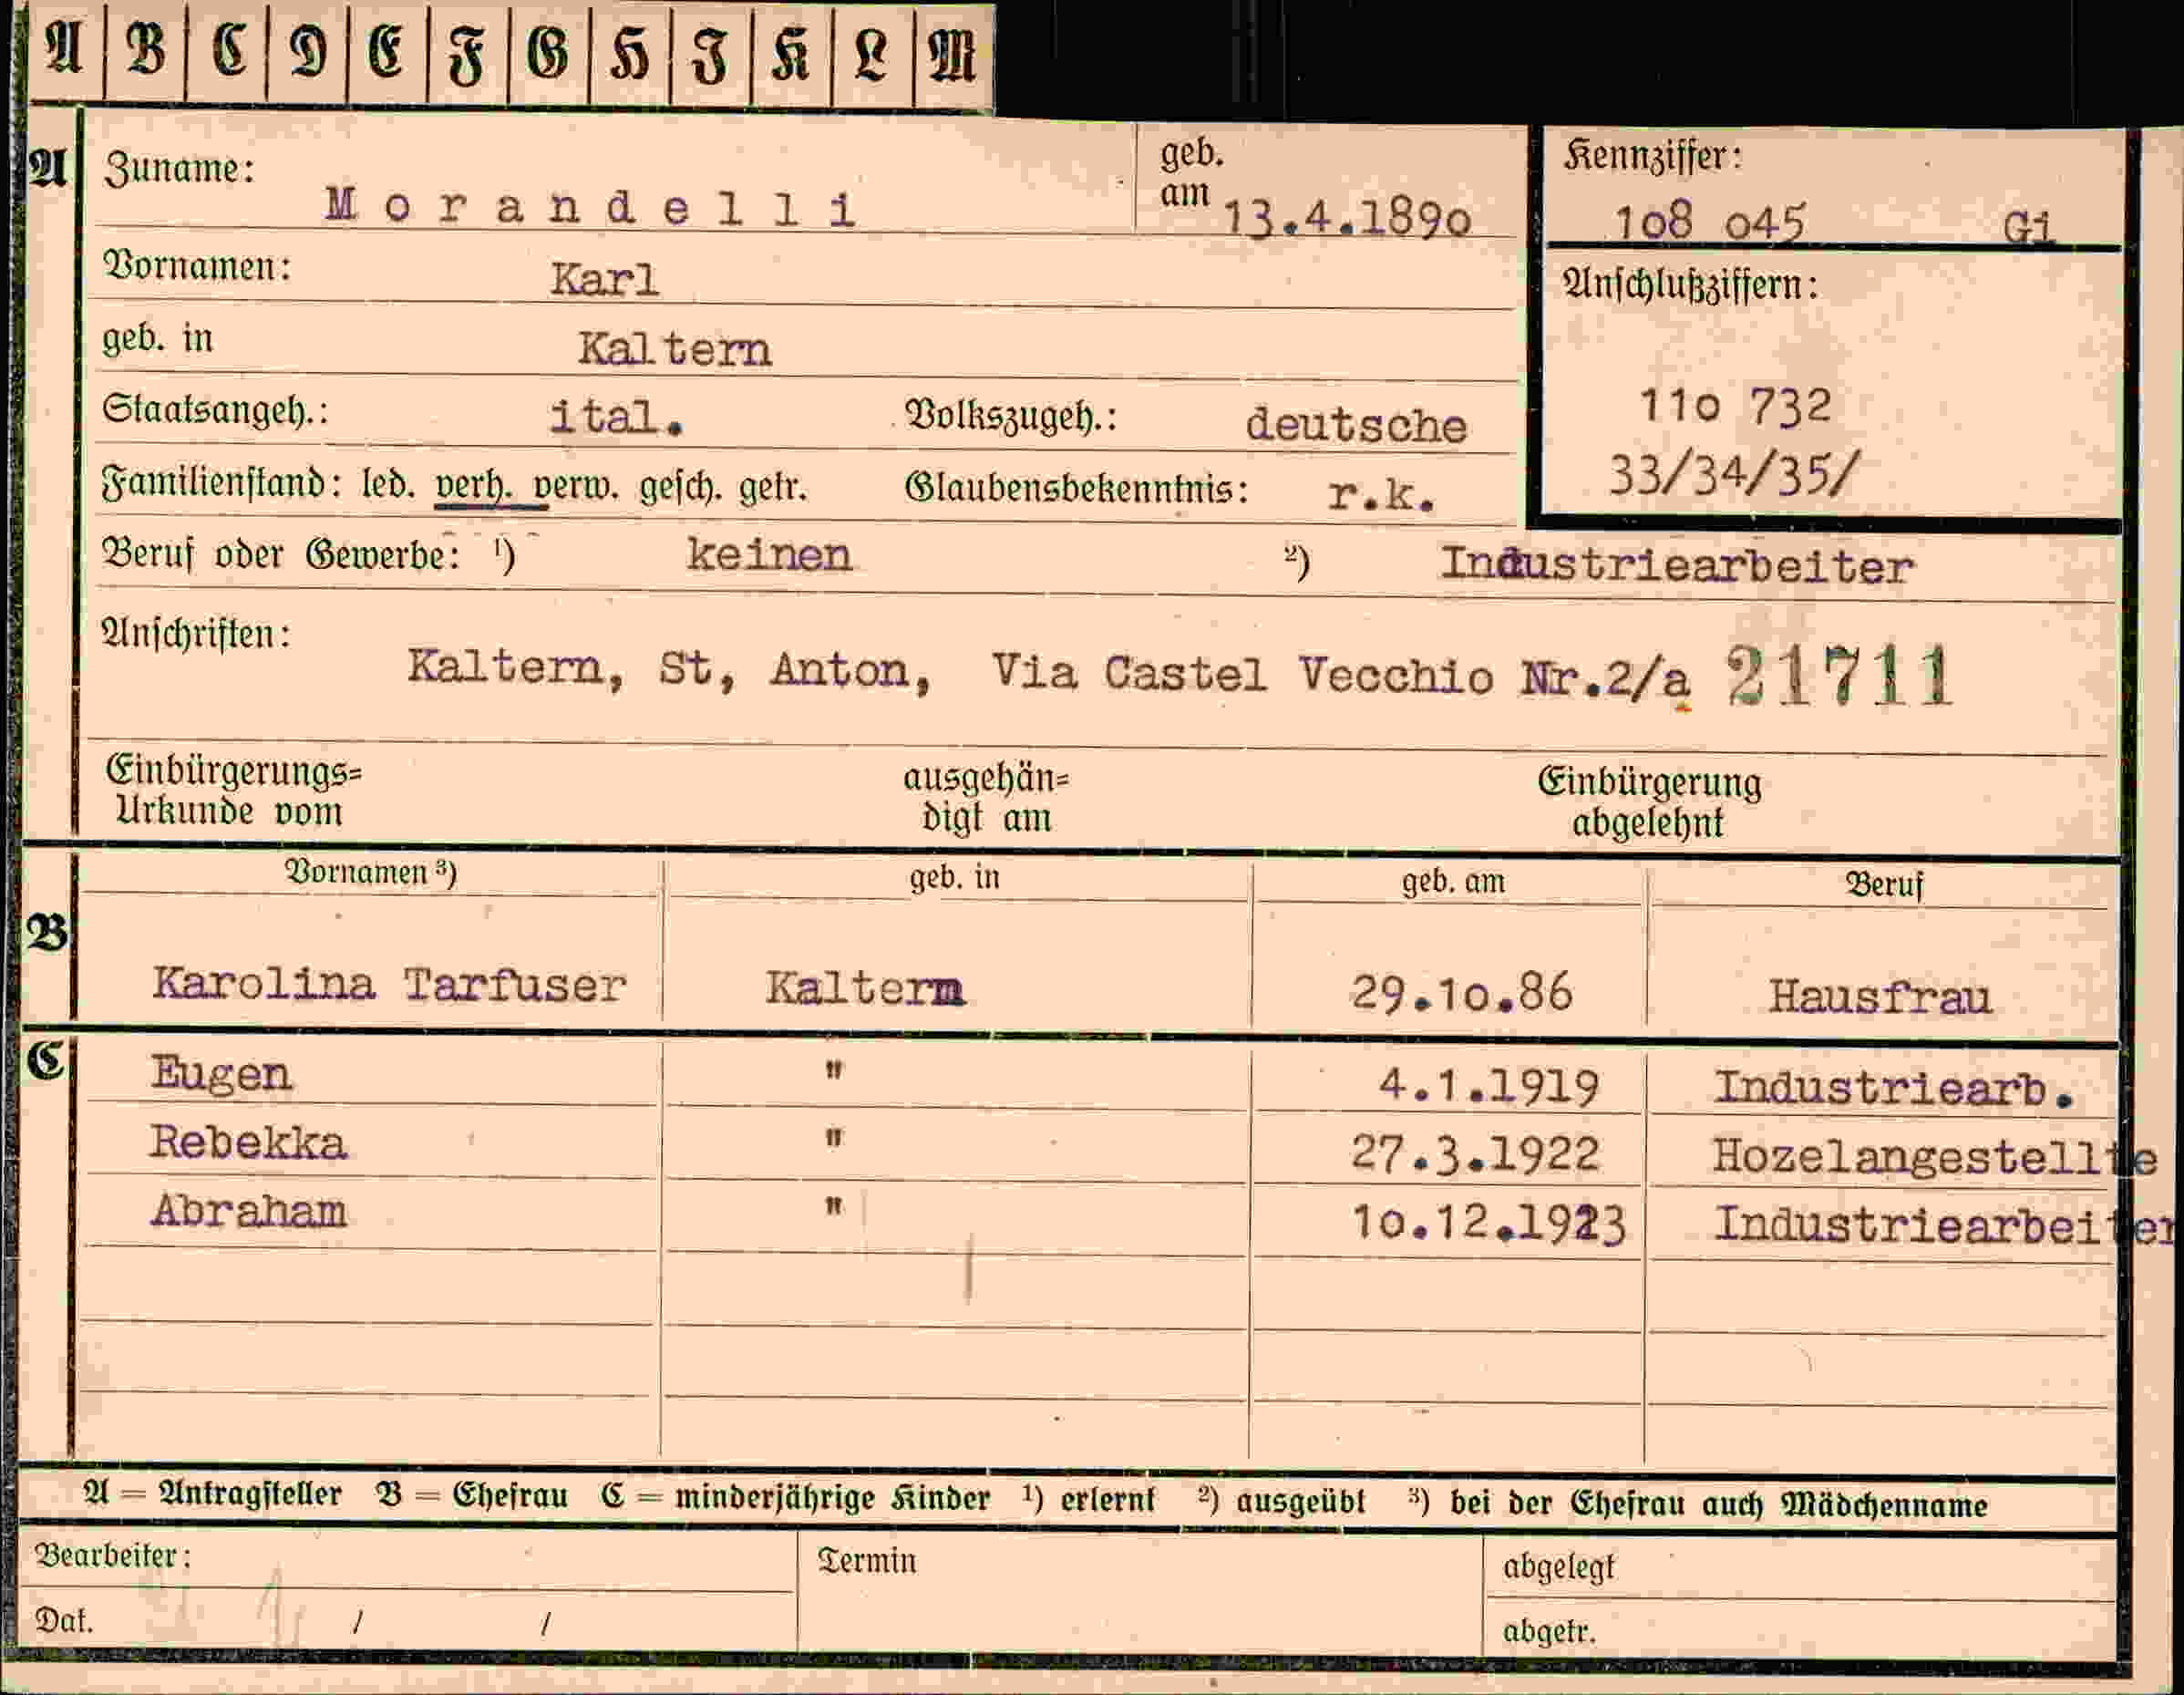 A B C D E F G H I K L M
A Zuname: Morandelli geb. am 13.4.1890 Kennziffer: 108 045 Gi
Vornamen: Karl Anschlußziffern:
geb. in Kaltern
Staatsangeh.: ital. Volkszugeh.: deutsche 110 732
Familienstand: led. verh. verw. gesch. getr. Glaubensbekenntnis: r.k. 33/34/35/
Beruf oder Gewerbe: ¹) keinen ²) Industriearbeiter
Anschriften: Kaltern, St, Anton, Via Castel Vecchio Nr.2/a 21711
Einbürgerungs= ausgehän= Einbürgerung
Urkunde vom digt am abgelehnt
Vornamen ³) geb. in geb. am Beruf
B Karolina Tarfuser Kaltern 29.10.86 Hausfrau
C Eugen " 4.1.1919 Industriearb.
Rebekka " 27.3.1922 Hozelangestellte
Abraham " 10.12.1923 Industriearbeiter
A = Antragsteller B = Ehefrau C = minderjährige Kinder ¹) erlernt ²) ausgeübt ³) bei der Ehefrau auch Mädchenname
Bearbeiter: Termin abgelegt
Dat. / / abgetr.